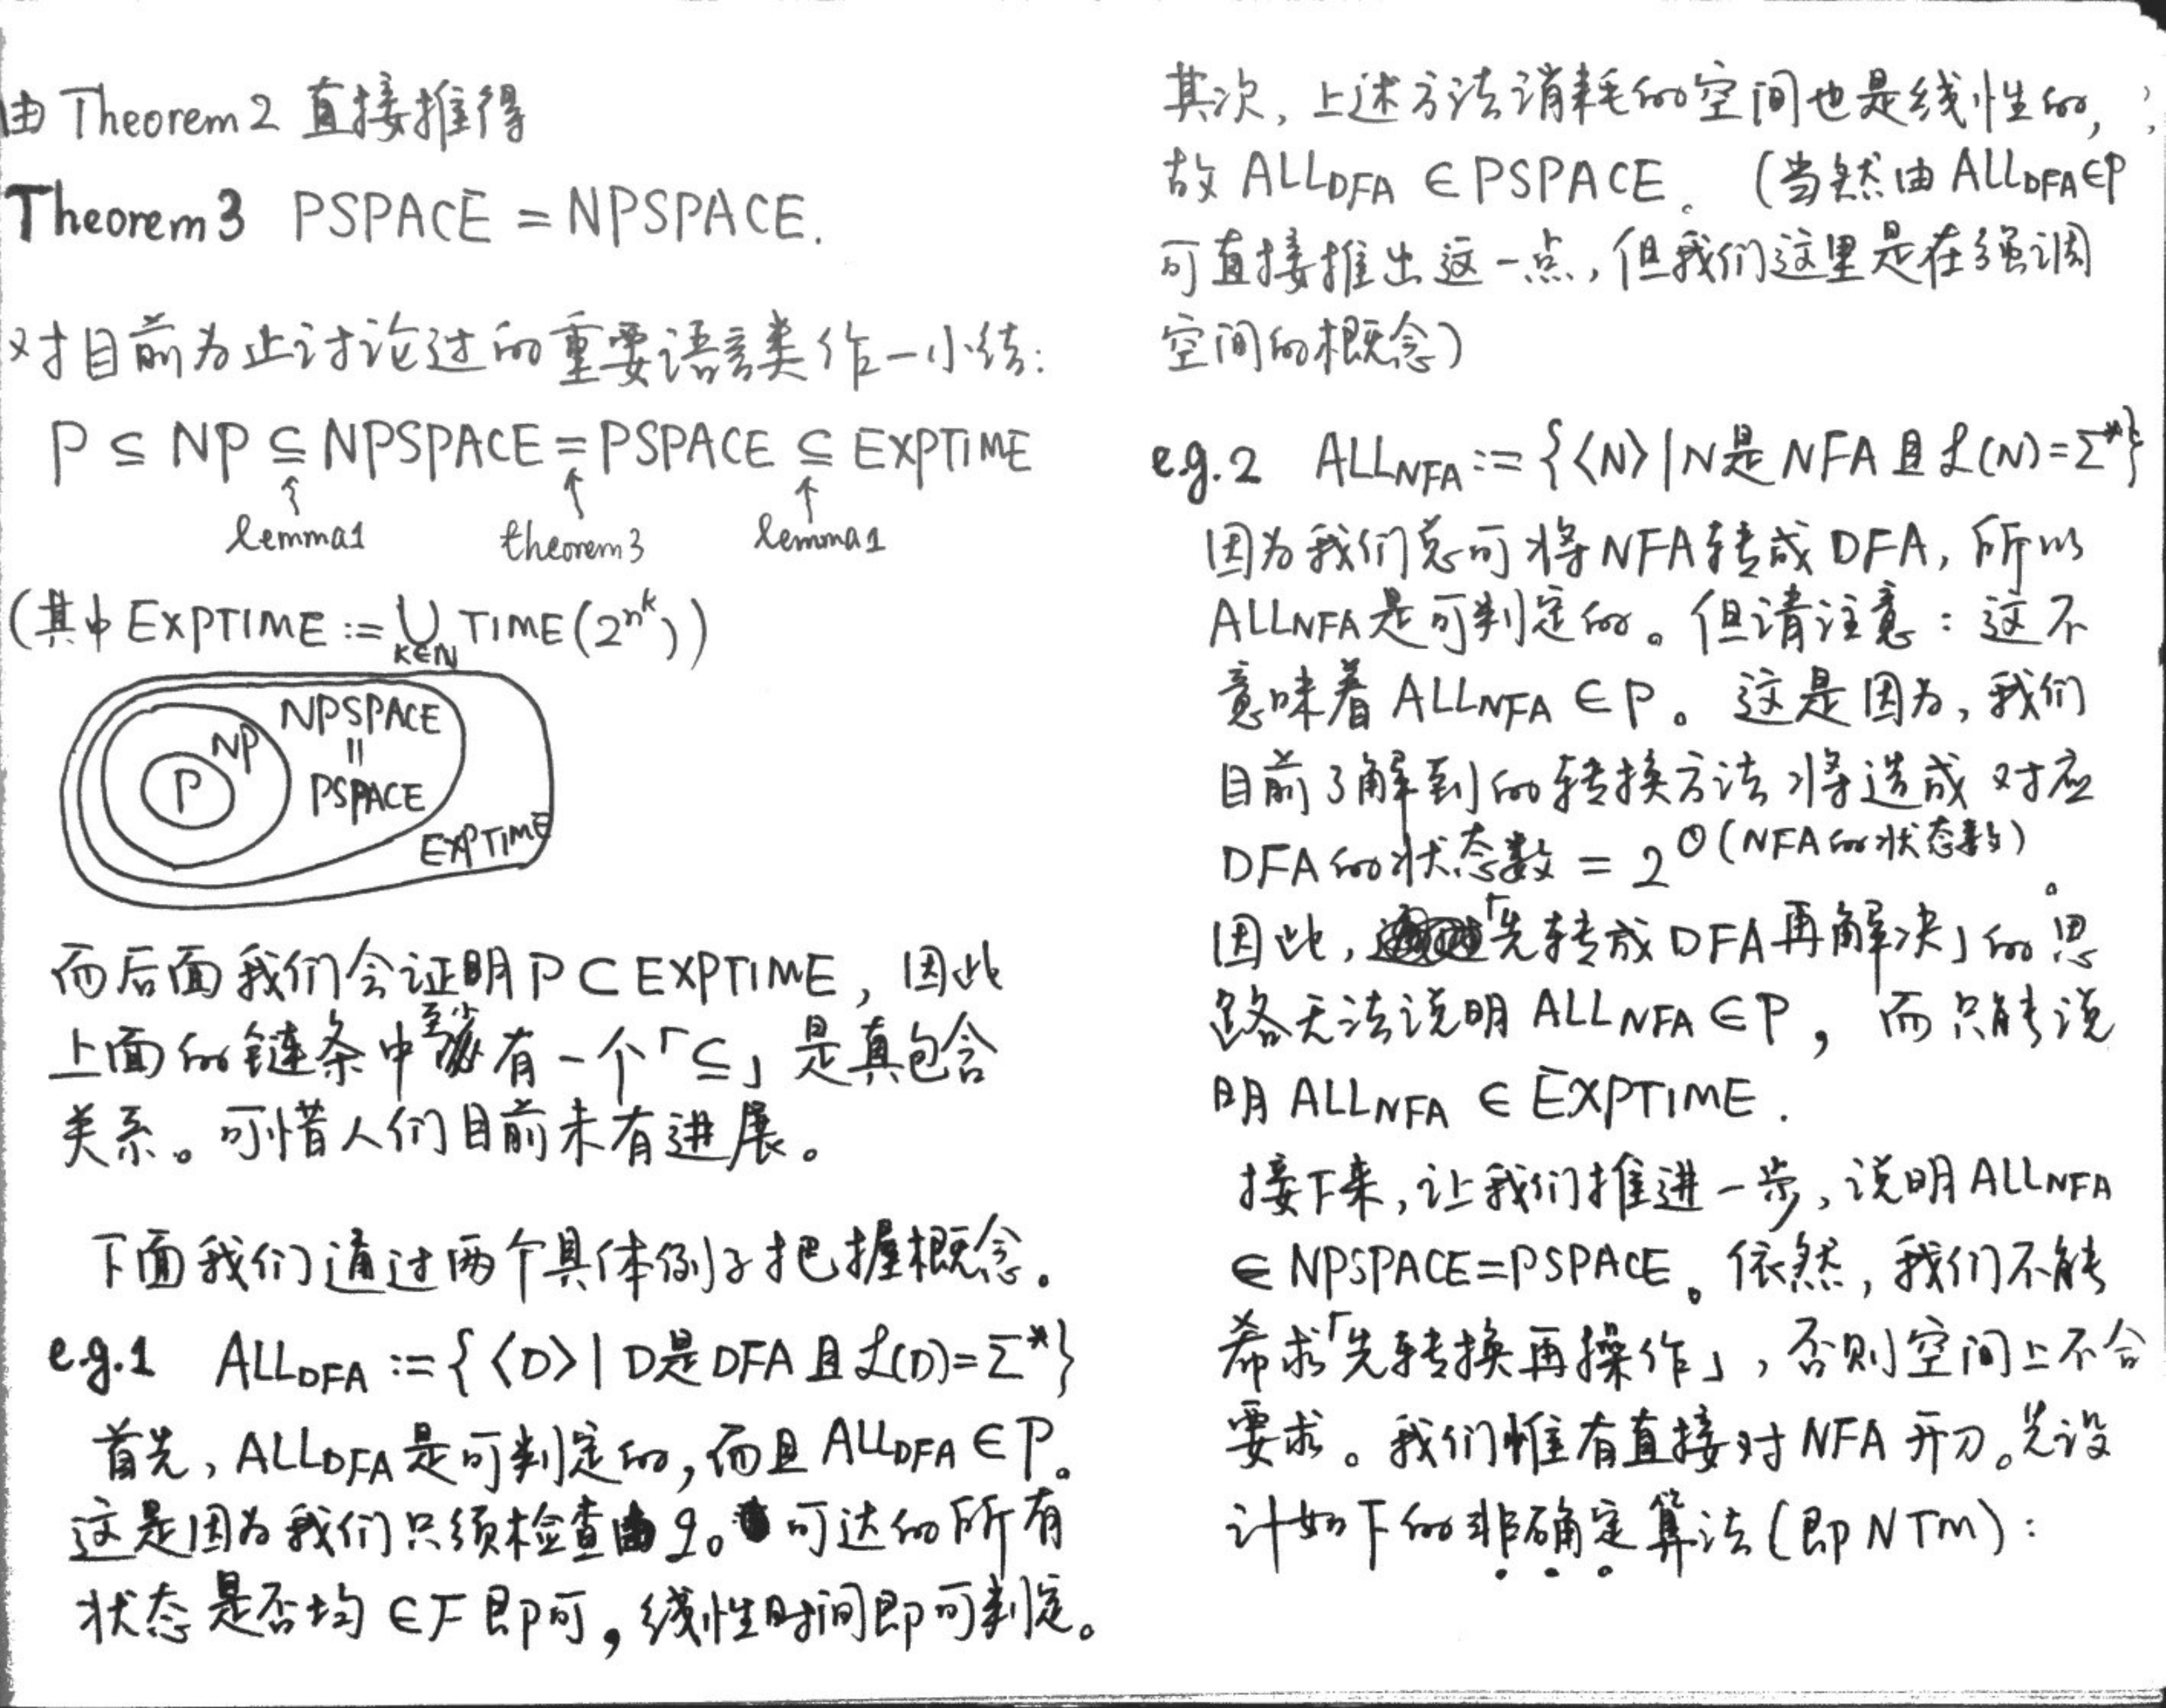 由 Theorem 2 直接推得
Theorem 3 PSPACE = NPSPACE.
对目前为止讨论过的重要语言类作一小结:
P ⊆ NP ⊆ NPSPACE = PSPACE ⊆ EXPTIME
↑ ↑ ↑
lemma1 theorem3 lemma1
(其中 EXPTIME := ⋃_{k∈N} TIME(2^{n^k}))
NPSPACE
NP
||
P
PSPACE
EXPTIME
而后面我们会证明 P ⊂ EXPTIME, 因此
上面的链条中至少有一个「⊆」是真包含
关系。可惜人们目前未有进展。
下面我们通过两个具体例子把握概念。
e.g.1 ALL_DFA := {⟨D⟩ | D是DFA且ℒ(D)=Σ*}
首先, ALL_DFA 是可判定的, 而且 ALL_DFA ∈ P。
这是因为我们只须检查由 q₀ 可达的所有
状态是否均 ∈ F 即可, 线性时间即可判定。
其次, 上述方法消耗的空间也是线性的,
故 ALL_DFA ∈ PSPACE。(当然由 ALL_DFA ∈ P
可直接推出这一点, 但我们这里是在强调
空间的概念)
e.g.2 ALL_NFA := {⟨N⟩ | N是NFA且ℒ(N)=Σ*}
因为我们总可将 NFA 转成 DFA, 所以
ALL_NFA 是可判定的。但请注意: 这不
意味着 ALL_NFA ∈ P。这是因为, 我们
目前了解到的转换方法将造成对应
DFA的状态数 = 2^{O(NFA的状态数)}。
因此,「先转成DFA再解决」的思
路无法说明 ALL_NFA ∈ P, 而只能说
明 ALL_NFA ∈ EXPTIME.
接下来, 让我们推进一步, 说明 ALL_NFA
∈ NPSPACE=PSPACE。依然, 我们不能
希求「先转换再操作」, 否则空间上不合
要求。我们惟有直接对 NFA 开刀。先设
计如下的非确定算法(即NTM):